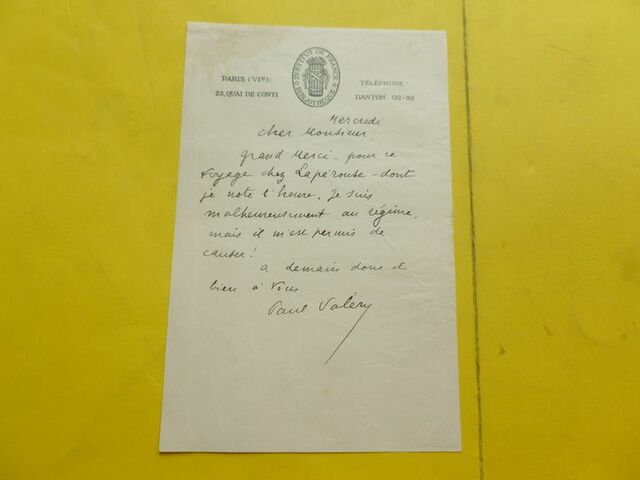 PARIS (VIe):
23, QUAI DE CONTI
INSTITUT DE FRANCE
BIBLIOTHÈQUE
TÉLÉPHONE:
DANTON 02-92
Mercredi
Cher Monsieur,
grand Merci - pour ce
Voyage chez Lapérouse - dont
je note l'heure. Je suis
malheureusement au régime,
mais il m'est permis de
causer!
a demain donc et
bien à Vous
Paul Valéry